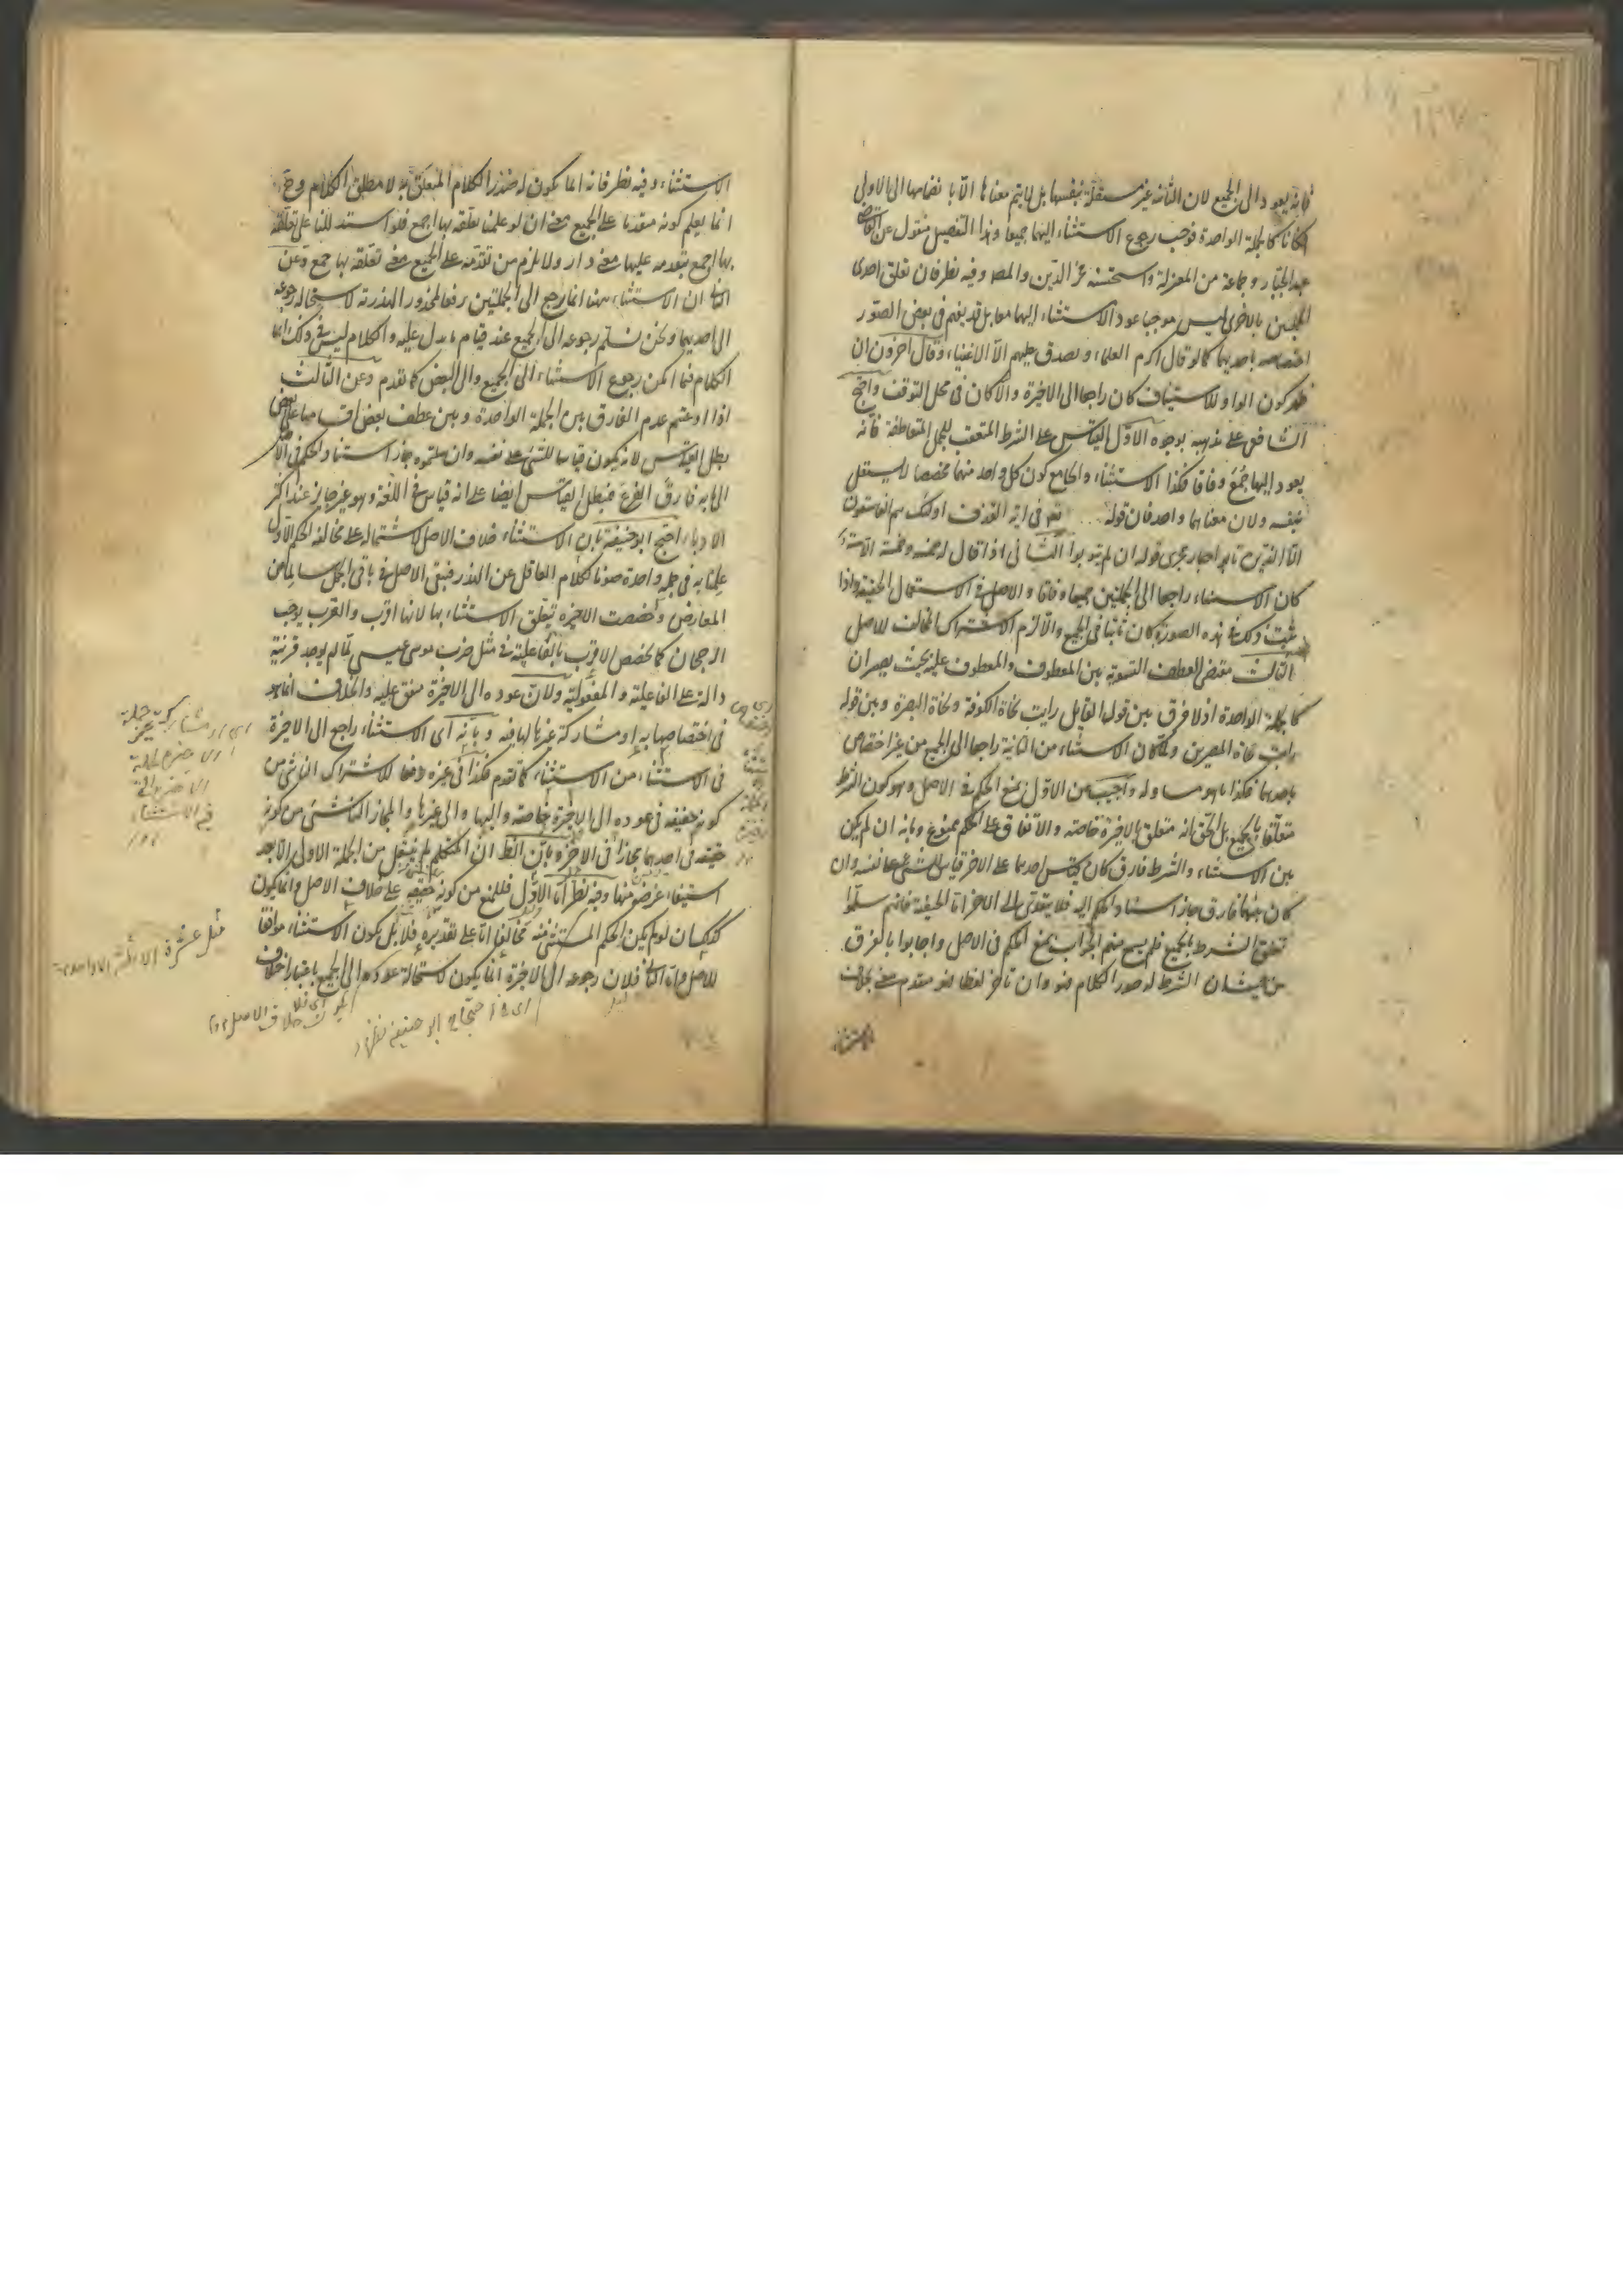 فانه يعود الى الجميع لان الثانية غير مستقلة بنفسها بل لا يتم معناها الا بانضمامها الى الاولى
فكانا كالجملة الواحدة فوجب رجوع الاستثناء اليهما جميعا وهذا التفصيل منقول عن القاضي
عبد الجبار وجماعة من المعتزلة واستحسنه فخر الدين والمصـ وفيه نظر فان تعلق احدى
الجملتين بالاخرى ليس موجبا عود الاستثناء اليهما معا بل قد يفهم في بعض الصور
اختصاصه باحديهما كما لو قال اكرم العلماء وتصدق عليهم الا الاغنياء وقال آخرون ان
ظهر كون الواو للاستيناف كان راجعا الى الاخيرة والا كان في محل التوقف واحتج
الشافعي على مذهبه بوجوه الاول القياس على الشرط المتعقب للجمل المتعاطفة فانه
يعود اليها جُمَع وفاقا فكذا الاستثناء والجامع كون كل واحد منهما مخصصا لا يستقل
بنفسه ولان معناهما واحد فان قوله تعـ في اية القذف اولئك هم الفاسقون
الا الذين تابوا جار مجرى قوله ان لم يتوبوا الثاني اذا قال له خمسة وخمسة الا ستة
كان الاستثناء راجعا الى الجملتين جميعا وفاقا والاصل في الاستعمال الحقيقة واذا
ثبت ذلك في هذه الصورة كان ثابتا في الجميع والا لزم الاشتراك المخالف للاصل
الثالث مقتضى العطف التسوية بين المعطوف والمعطوف عليه بحيث يصيران
كالجملة الواحدة اذ لا فرق بين قول القايل رايت نحاة الكوفة ونحاة البصرة وبين قوله
رايت نحاة المصرين ولما كان الاستثناء من الثانية راجعا الى الجميع من غير اختصاص
باحديهما فكذا ما هو مساو له واجيب عن الاول بمنع الحكم في الاصل وهو كون الشرط
متعلقا بالجميع بل الحق انه متعلق بالاخيرة خاصة والاتفاق على الحكم ممنوع وبانه ان لم يكن
بين الاستثناء والشرط فارق كان قياس احدهما على الاخر قياس الشئ على نفسه وان
كان بينهما فارق جاز استناد الحكم اليه فلا يتعدى الى الاخر اما الحنفية فانهم سلموا
تعلق الشرط بالجميع فلم يسع منهم الجواب بمنع الحكم في الاصل واجابوا بالفرق
من حيث ان الشرط له صدر الكلام فهو وان تاخر لفظا فهو مقدم معنى بخلاف
الاستثناء
الاستثناء وفيه نظر فانه انما يكون له صدر الكلام المتعلق به لا مطلق الكلام وحـ
انما يعلم كونه مقدما على الجميع معنى ان لو علمنا تعلقه بها اجمع فلو استدللنا على تعلقه
بها اجمع بتقدمه عليها معنى دار ولا يلزم من تقدمه على الجميع معنى تعلقه بها جمع وعن
الثاني ان الاستثناء هنا انما رجع الى الجملتين رفعا لمحذور الهذرية لاستحالة رجوعه
الى احديهما ونحن نسلم رجوعه الى الجميع عند قيام ما يدل عليه والكلام ليس في ذلك انما
الكلام فيما امكن رجوع الاستثناء الى الجميع والى البعض كما تقدم وعن الثالث
اذا ادعيتم عدم الفارق بين الجملة الواحدة وبين عطف بعض اقسامها على بعض
بطل القياس لانه يكون قياسا للشئ على نفسه وان سلمتموه جاز استناد الحكم في الاصل
الى ما به فارق الفرع فيبطل القياس ايضا على انه قياس في اللغة وهو غير جائز عند اكثر
الادباء احتج ابو حنيفة بان الاستثناء خلاف الاصل لاشتماله على مخالفة الحكم الاول
علمنا به في جملة واحدة صونا لكلام العاقل عن الهذر فبقى الاصل في باقي الجمل سالما عن
المعارض وخصصت الاخيرة بتعلق الاستثناء بها لانها اقرب والقرب يوجب
الرجحان كما يخصص الاقرب بالفاعلية في مثل ضرب موسى عيسى لما لم يوجد قرينة
دالة على الفاعلية والمفعولية ولان عوده الى الاخيرة متفق عليه والخلاف انما هو
في اختصاصها به او مشاركة غيرها لها فيه وبانه اى الاستثناء راجع الى الاخيرة
في الاستثناء من الاستثناء كما تقدم فكذا في غيره دفعا للاشتراك الناشئ من
كونه حقيقة في عوده الى الاخيرة خاصة واليها والى غيرها والمجاز الناشئ من كونه
حقيقة في احديهما مجازا في الاخرى وبان الظ ان المتكلم لم ينتقل من الجملة الاولى الا بعد
استيفاء غرضه منها وفيه نظر اما الاول فللمنع من كونه حقيقة على خلاف الاصل وانما يكون
كذلك ان لو لم يكن الحكم المستثنى منه مخالفا اما على تقديره فلا بل يكون الاستثناء موافقا
للاصل واما الثاني فلان رجوعه الى الاخيرة انما يكون لاستحالة عوده الى الجميع باعتبار اختلاف
اى او مشاركة غير جملة
الاخيرة
فى الاستثناء
مثل عشرة الا ثلثة الا واحد
اى فى احتجاج ابو حنيفة نظر
خلاف الاصل